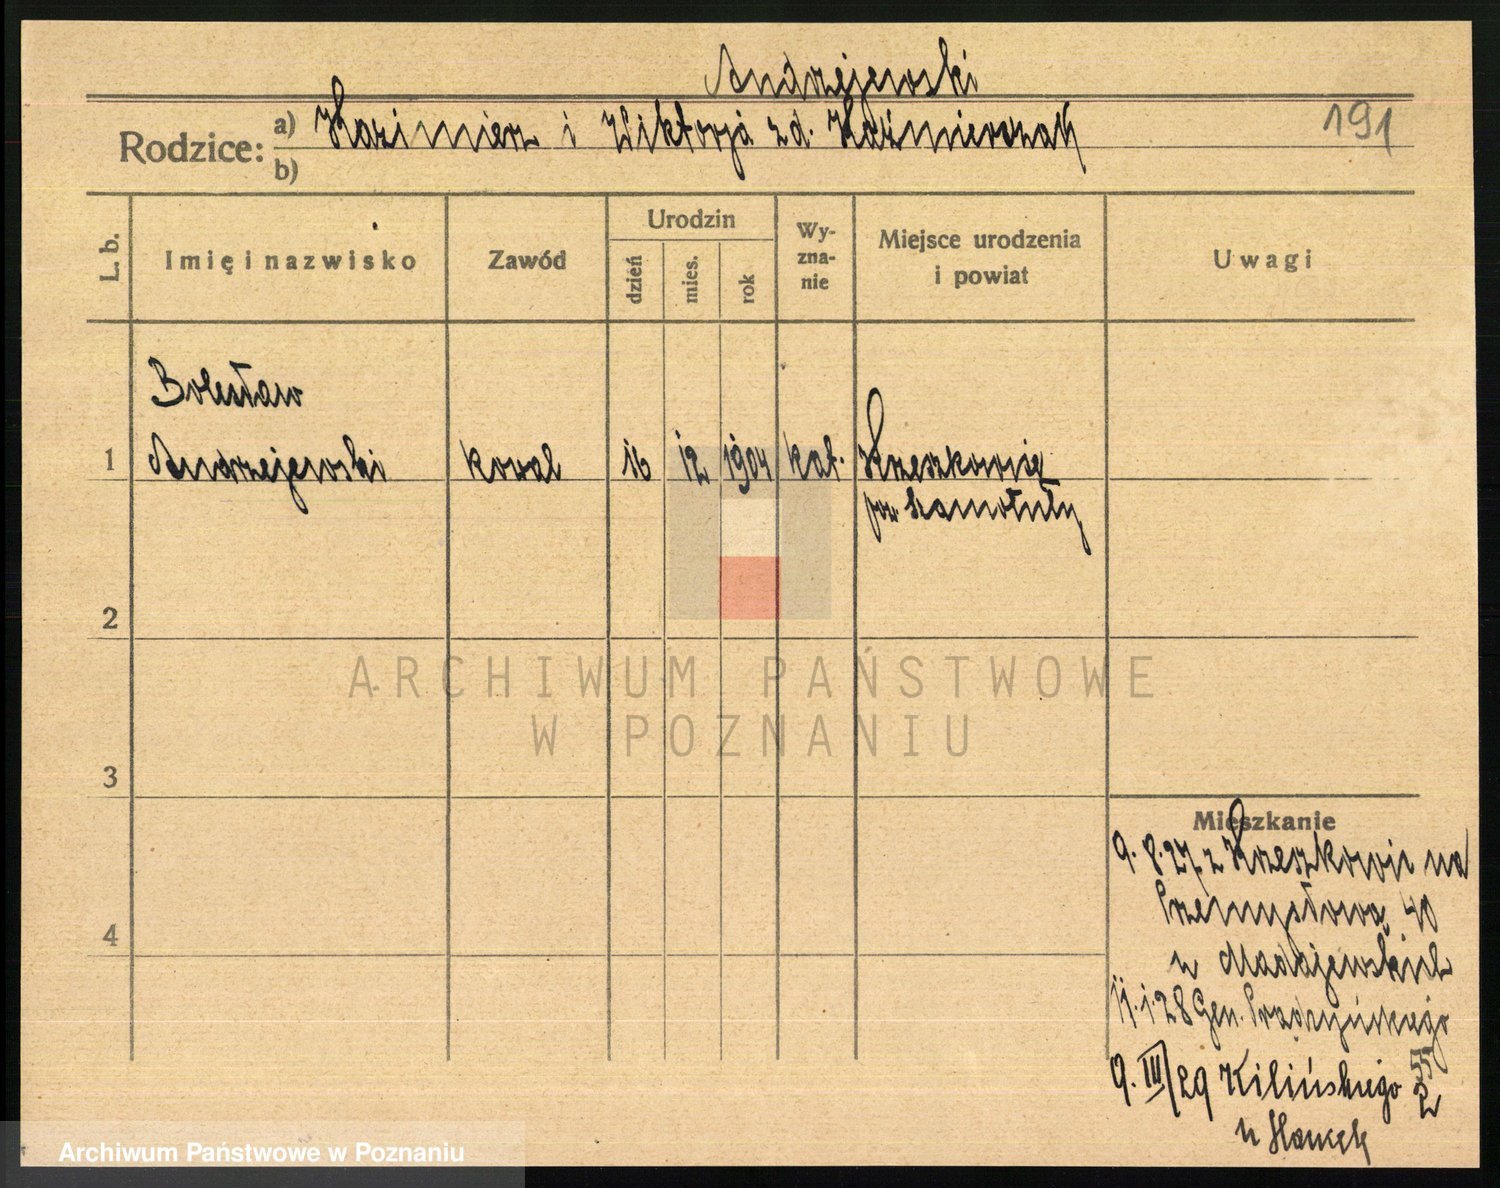 Andrzejewski
Rodzice: a) Kazimierz i Wiktorja z d. Kaźmierczak
191
b)
L. b.
Imię i nazwisko
Zawód
Urodzin
dzień
mies.
rok
Wy-
zna-
nie
Miejsce urodzenia
i powiat
Uwagi
Bolesław
1 Andrzejewski kowal 16 12 1904 kat.
pow. Szamotuły
2
3
4
ARCHIWUM PAŃSTWOWE
W POZNANIU
Mieszkanie
9. 8. 27. z na
Przemysłową 40
u
11. 1. 28 Gen. Prądzyńskiego
9. III/29 Kilińskiego
u
Archiwum Państwowe w Poznaniu